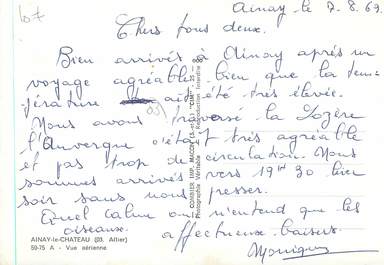 67
Ainay le 7.8.69
Chers tous deux.
Bien arrivés à Ainay après un
voyage agréable bien que la tem-
pérature ait été très élevée.
Nous avons traversé la Lozère
l'Auvergne c'était très agréable
et pas trop de circulation. Nous
sommes arrivés vers 19H30 hier
soir sans nous presser.
Quel calme on n'entend que les
oiseaux.
affectueux baisers
Monique
AINAY-le-CHATEAU (03. Allier)
59-75 A - Vue aérienne
COMBIER IMP. MACON (S.-et-L.) "CIM"
Photographie Véritable - Reproduction Interdite